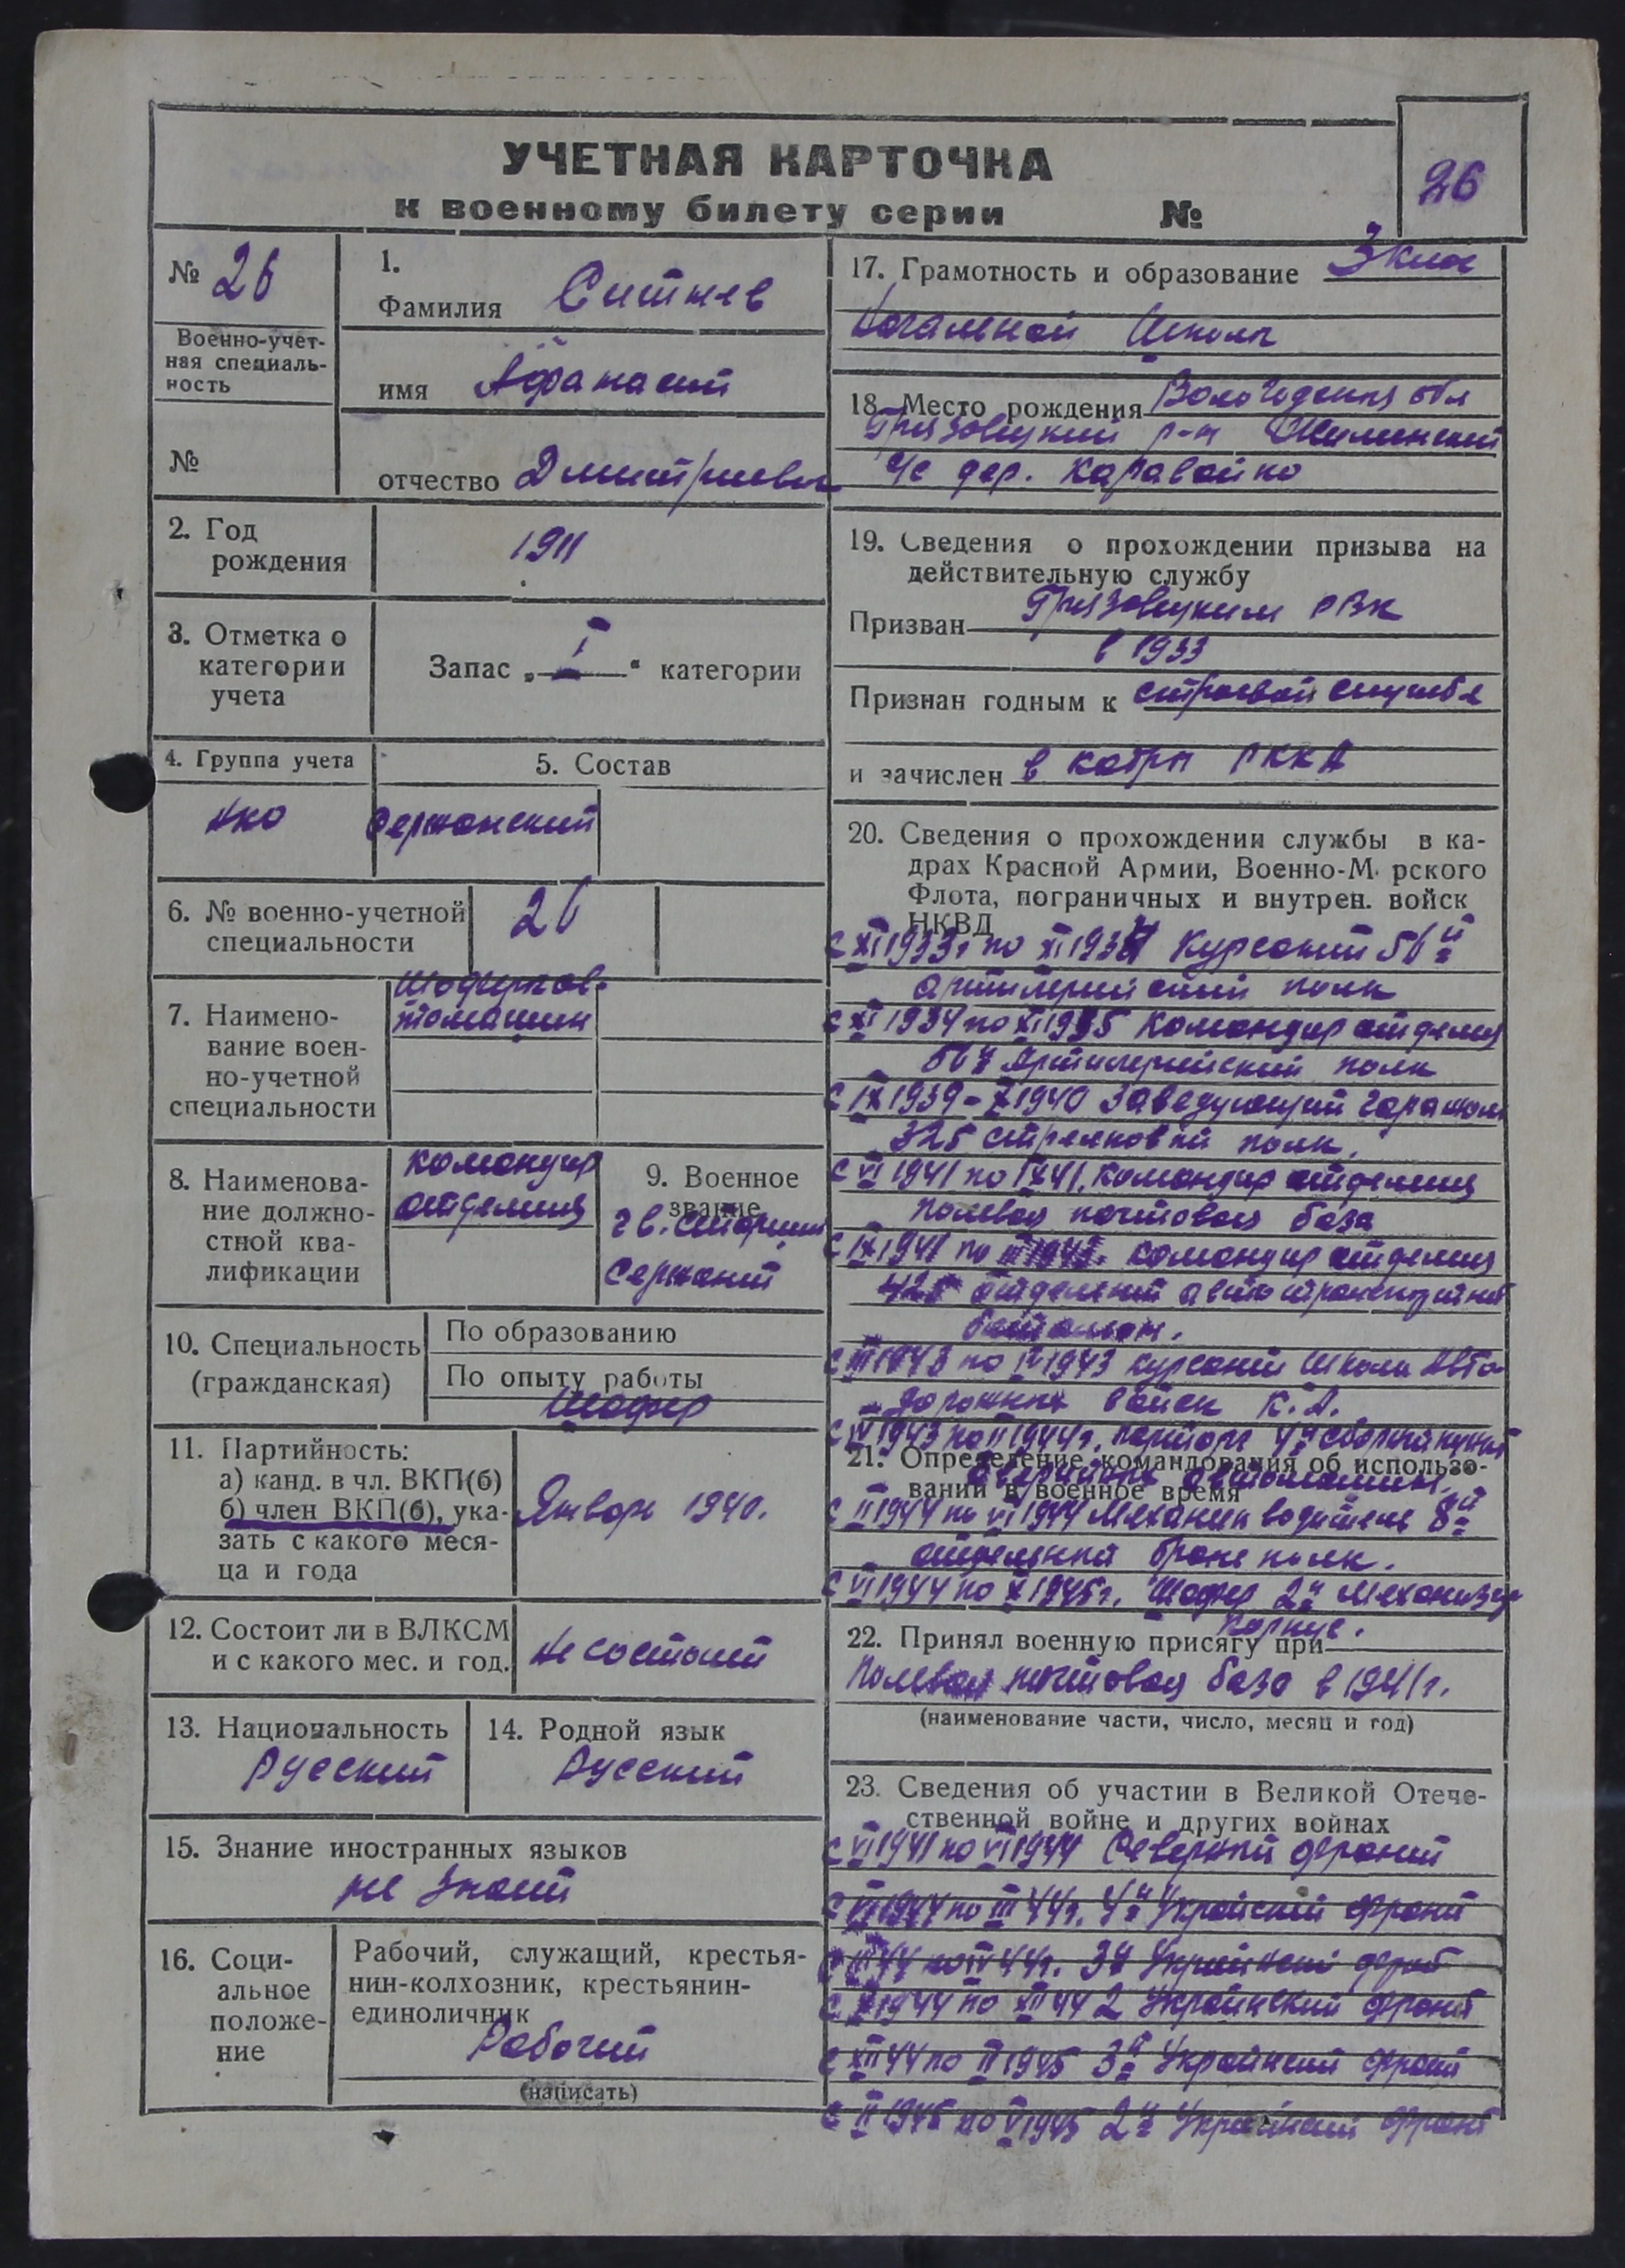 УЧЕТНАЯ КАРТОЧКА
к военному билету серии №
26
№ 26
Военно-учет-
ная специаль-
ность
№
1.
Фамилия Ситнев
имя Афанасий
отчество Дмитриевич
2. Год
рождения
1911
3. Отметка о
категории
учета
Запас „ I “ категории
4. Группа учета
5. Состав
Сержанский
6. № военно-учетной
специальности
26
7. Наимено-
вание воен-
но-учетной
специальности
8. Наименова-
ние должно-
стной ква-
лификации
командир
отделения
9. Военное
звание
гв. старший
сержант
10. Специальность
(гражданская)
По образованию
По опыту работы
Шофер
11. Партийность:
а) канд. в чл. ВКП(б)
б) член ВКП(б), ука-
зать с какого меся-
ца и года
Январь 1940.
12. Состоит ли в ВЛКСМ
и с какого мес. и год.
Не состоит
13. Национальность
Русский
14. Родной язык
Русский
15. Знание иностранных языков
не знает
16. Соци-
альное
положе-
ние
Рабочий, служащий, крестья-
нин-колхозник, крестьянин-
единоличник
Рабочий
(написать)
17. Грамотность и образование 3 клас
Начальной Школы
18. Место рождения Вологодския обл
Грязовецкий р-н
с/с дер. Каравайко
19. Сведения о прохождении призыва на
действительную службу
Призван Грязовецким РВК
в 1933
Признан годным к строевой службе
и зачислен в кадры РККА
20. Сведения о прохождении службы в ка-
драх Красной Армии, Военно-М рского
Флота, пограничных и внутрен. войск
НКВД
с XI 1933г по XI 1934 Курсант 56й
артилерийский полк
с XI 1934 по XI 1935 Командир отделения
56й Артилерийский полк
с IX 1939 - X 1940 Заведующий гаражом
325 стрелковый полк.
с VI 1941 по IX 41. Командир отделения
полевая почтовая база
с IX 1941 по III 1943. Командир отделения
425 отдельный автотранспортный
батальон.
с III 1943 по IV 1943 курсант Школы Авто-
дорожных войск К. А.
с IV 1943 по II 1944г. парторг 4й сборный пункт
аварийных автомашин.
21. Определение командования об использо-
вании в военное время
с II 1944 по VI 1944 Механик водитель 8й
отдельный броне полк.
с VI 1944 по X 1945г. Шофер 2й Механизир
корпус.
22. Принял военную присягу при
Полевая почтовая база в 1941г.
(наименование части, число, месяц и год)
23. Сведения об участии в Великой Отече-
ственной войне и других войнах
с VI 1941 по VI 1944 Северный фронт
по III 44г. 4й Украйский фронт
по IV 44г. 3й
с X 1944 по XII 44 2 Украинский фронт
с XII 44 по II 1945 3й Украинский фронт
с II 1945 по V 1945 2й Украинский фронт